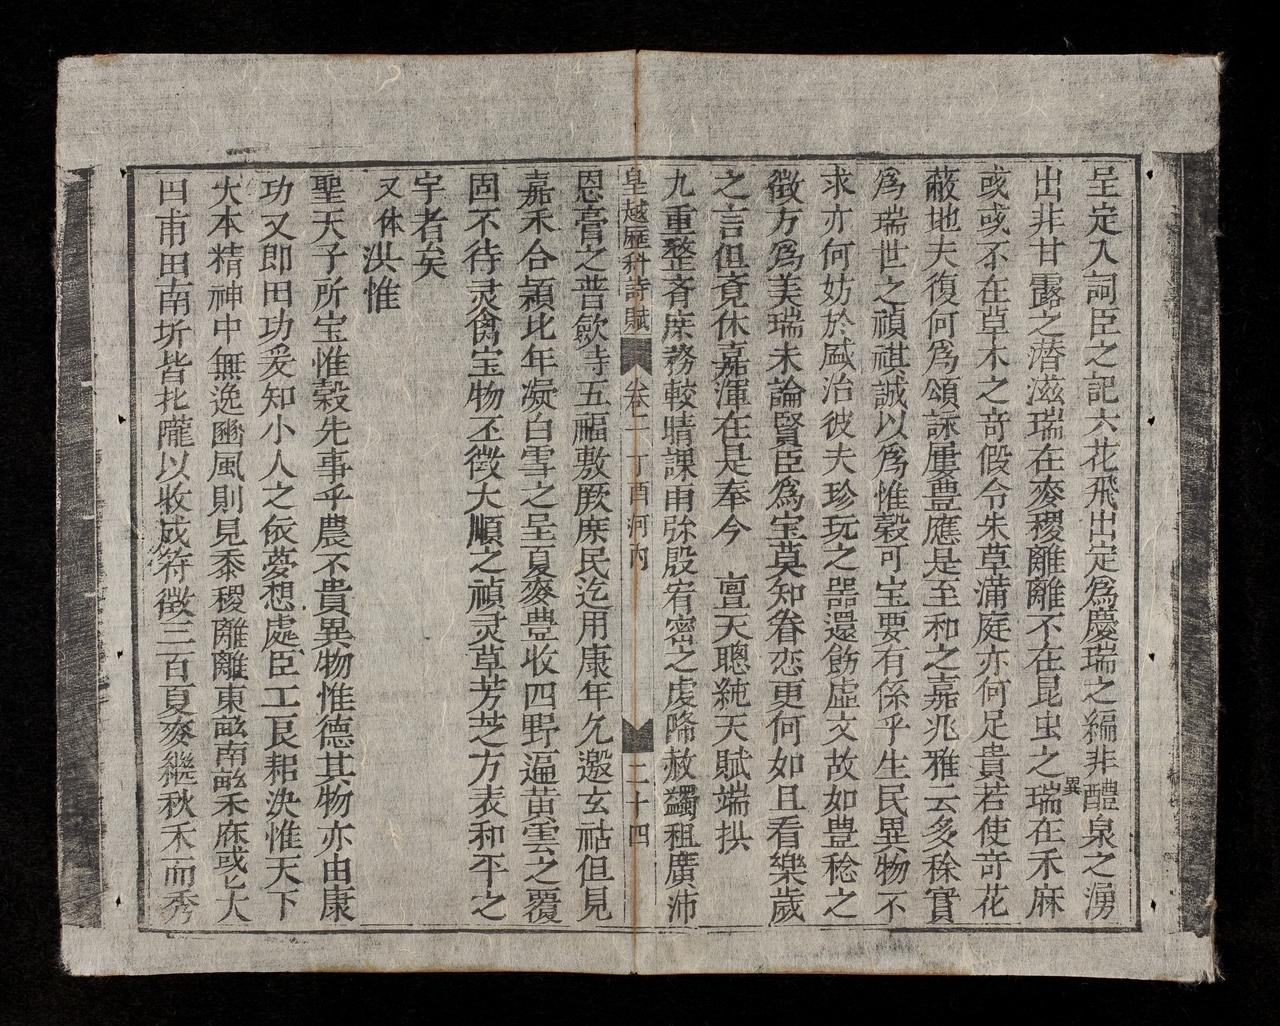 呈定入詞臣之記六花飛出定為慶瑞之編非醴泉之湧
出非甘露之潜滋瑞在麥稷離離不在昆虫之異瑞在禾麻
或或不在草木之竒假令朱草蒲庭亦何足貴若使竒花
蔽地夫復何為頌詠屢豊應是至和之嘉兆雅云多稌實
為瑞世之禎祺誠以為惟穀可宝要有係乎生民異物不
求亦何妨於盛治彼夫珍玩之器還飭虛文故如豊稔之
徵方為美瑞未論賢臣為宝莫知眷恋更何如且看樂歲
之言但覔休嘉渾在是奉今 亶天聰純天賦端拱
九重整斉庶務較晴課雨弥殷宥密之虔降赦蠲租廣沛
皇越歷科詩賦 卷二 丁酉河內 二十四
恩膏之普歛時五福敷厥庶民迄用康年久邀玄祜但見
嘉禾合穎比年凝白雪之呈夏麥豊收四野遍黃雲之覆
固不待灵禽宝物丕徵大順之禎灵草芳芝方表和平之
宇者矣
又体洪惟
聖天子所宝惟穀先事乎農不貴異物惟德其物亦由康
功又即田功爰知小人之依夢想處臣工良耜決惟天下
大本精神中無逸豳風則見黍稷離離東畝南畝禾麻或比大
田甫田南圻皆北隴以收成符徵三百夏麥繼秋禾而秀